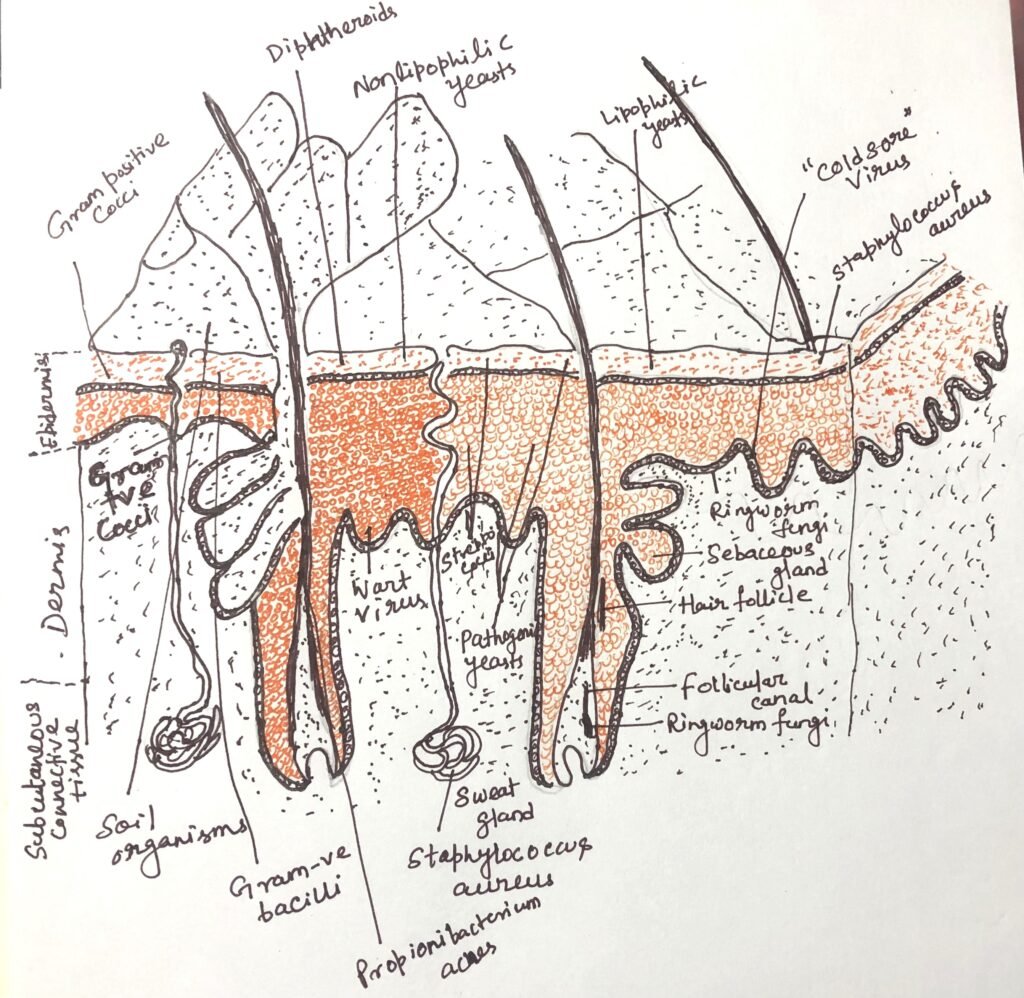 Diphtheroids
Nonlipophilic
yeasts
Lipophilic
yeasts
Gram positive
cocci
"Coldsore"
Virus
Staphylococcus
aureus
Epidermis
Gram
+ve
Cocci
Dermis
Wart
virus
Strepto
cocci
Pathogenic
yeasts
Ringworm
fungi
Sebaceous
gland
Hair follicle
Follicular
canal
Ringworm fungi
Subcutaneous
connective
tissue
Soil
organisms
Sweat
gland
Gram-ve
bacilli
Staphylococcus
aureus
Propionibacterium
acnes